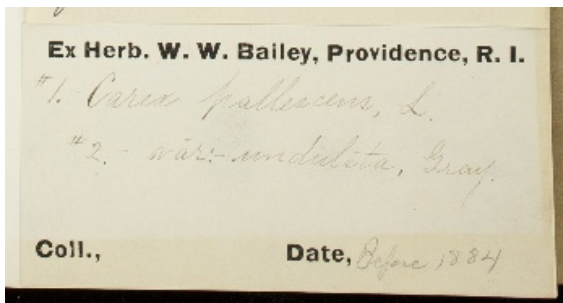 Ex Herb. W. W. Bailey, Providence, R. I.
#1. Carex pallescens, L.
#2. - var: - undulata, Gray.
Coll., Date, Before 1884